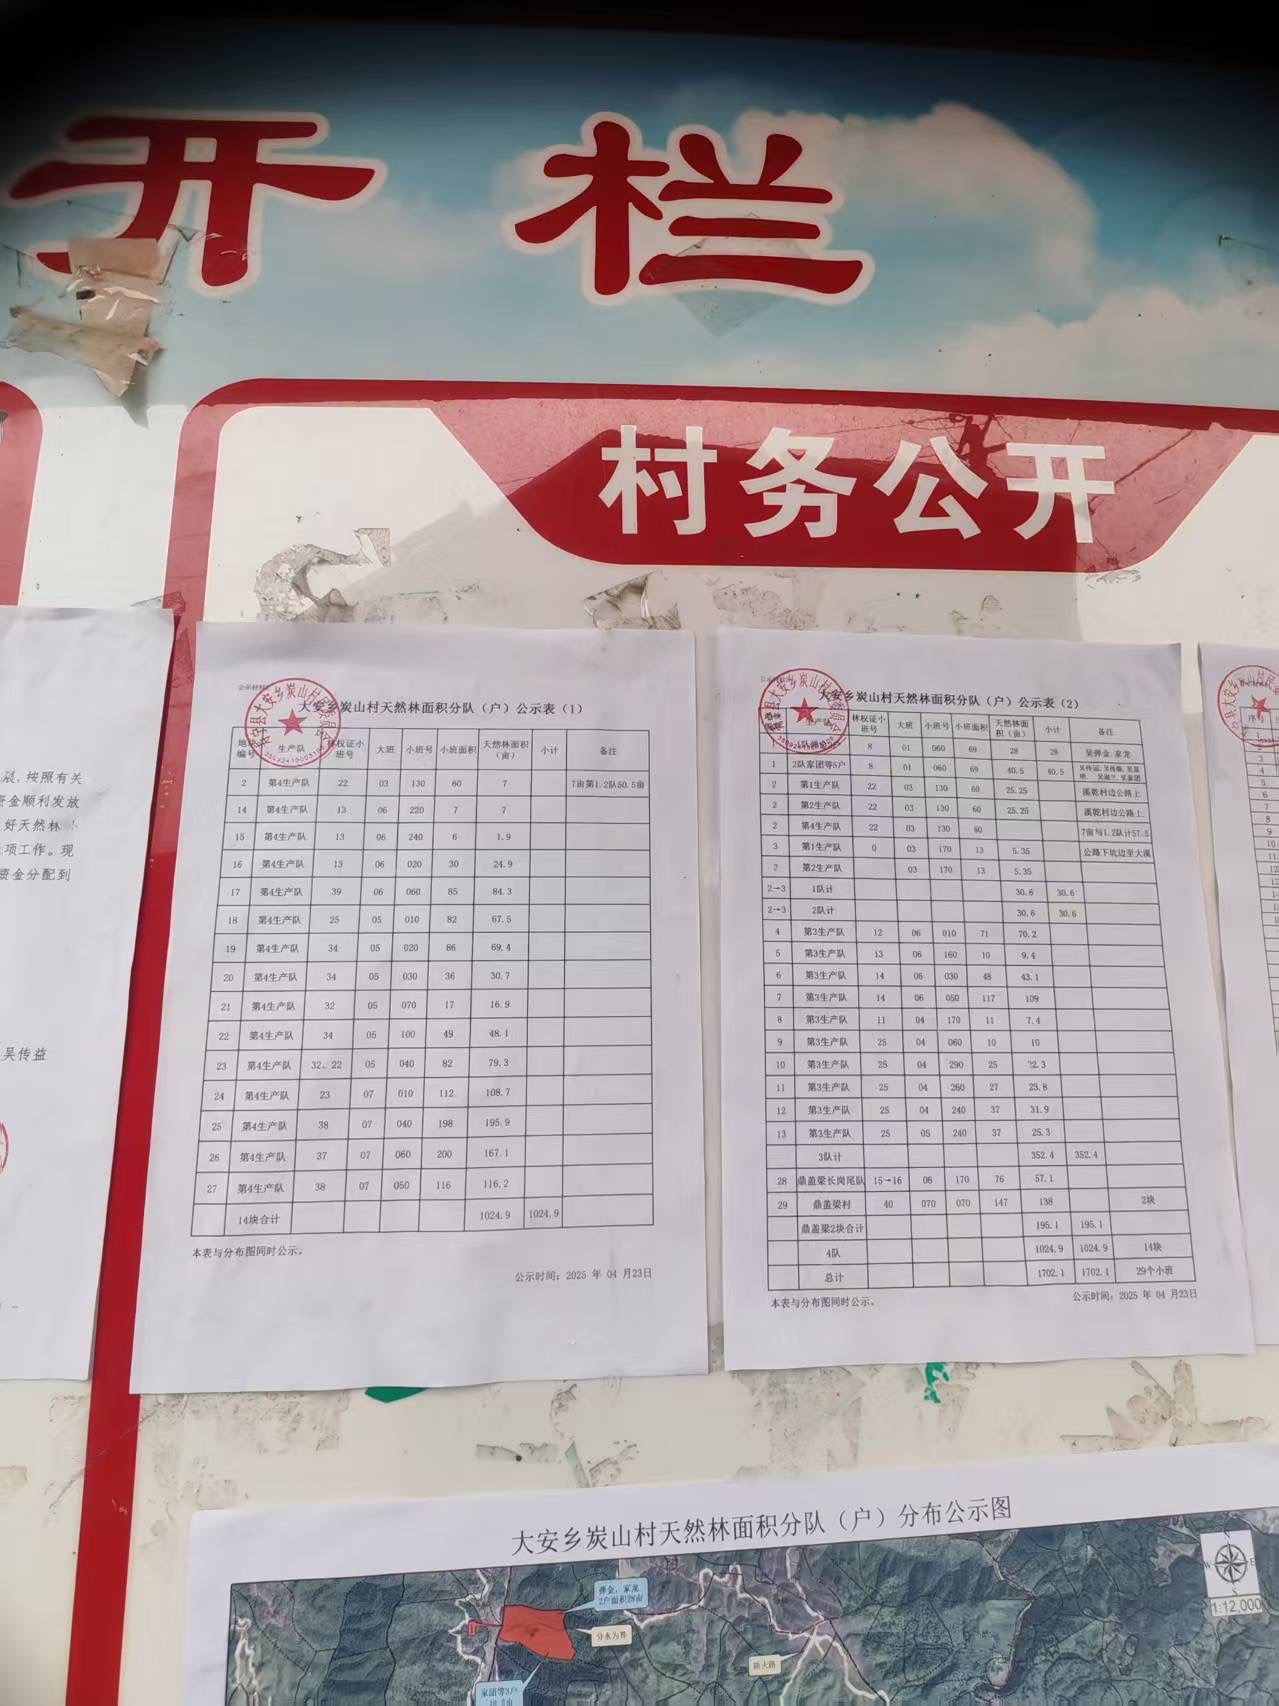 开 栏
村务公开
晨,按照有关
资金顺利发放
好天然林
项工作。现
资金分配到
吴传益
公示材料
大安乡炭山村天然林面积分队（户）公示表（1）
编号 生产队 林权证小班号 大班 小班号 小班面积 天然林面积（亩） 小计 备注
2 第4生产队 22 03 130 60 7 7亩第1.2队50.5亩
14 第4生产队 13 06 220 7 7
15 第4生产队 13 06 240 6 1.9
16 第4生产队 13 06 020 30 24.9
17 第4生产队 39 06 060 85 84.3
18 第4生产队 25 05 010 82 67.5
19 第4生产队 34 05 020 86 69.4
20 第4生产队 34 05 030 36 30.7
21 第4生产队 32 05 070 17 16.9
22 第4生产队 34 05 100 49 48.1
23 第4生产队 32、22 05 040 82 79.3
24 第4生产队 23 07 010 112 108.7
25 第4生产队 38 07 040 198 195.9
26 第4生产队 37 07 060 200 167.1
27 第4生产队 38 07 050 116 116.2
14块合计 1024.9 1024.9
本表与分布图同时公示。
公示时间：2025 年 04 月23日
大安乡炭山村天然林面积分队（户）公示表（2）
编号 生产队 林权证小班号 大班 小班号 小班面积 天然林面积（亩） 小计 备注
8 01 060 69 28 28 吴弹金、家龙
1 2队家团等5户 8 01 060 69 40.5 40.5
2 第1生产队 22 03 130 60 25.25 溪乾村边公路上
2 第2生产队 22 03 130 60 25.25 溪乾村边公路上
2 第4生产队 22 03 130 60 7亩与1.2队计57.5
3 第1生产队 0 03 170 13 5.35 公路下坑边至大溪
第2生产队 03 170 13 5.35
2→3 1队计 30.6 30.6
2→3 2队计 30.6 30.6
4 第3生产队 12 06 010 71 70.2
5 第3生产队 13 06 160 10 9.4
6 第3生产队 14 06 030 48 43.1
7 第3生产队 14 06 050 117 109
8 第3生产队 11 04 170 11 7.4
9 第3生产队 25 04 060 10 10
10 第3生产队 25 04 290 25 22.3
11 第3生产队 25 04 260 27 23.8
12 第3生产队 25 04 240 37 31.9
13 第3生产队 25 05 240 37 25.3
3队计 352.4 352.4
28 鼎盖梁长岗尾队 15→16 06 170 76 57.1
29 鼎盖梁村 40 070 070 147 138 2块
鼎盖梁2块合计 195.1 195.1
4队 1024.9 1024.9 14块
总计 1702.1 1702.1 29个小班
本表与分布图同时公示。
公示时间：2025 年 04 月23日
序号
大安乡炭山村天然林面积分队（户）分布公示图
弹金、家龙
2户面积28亩
分水为界
防火路
家团等5户
N
W E
S
1:12,000